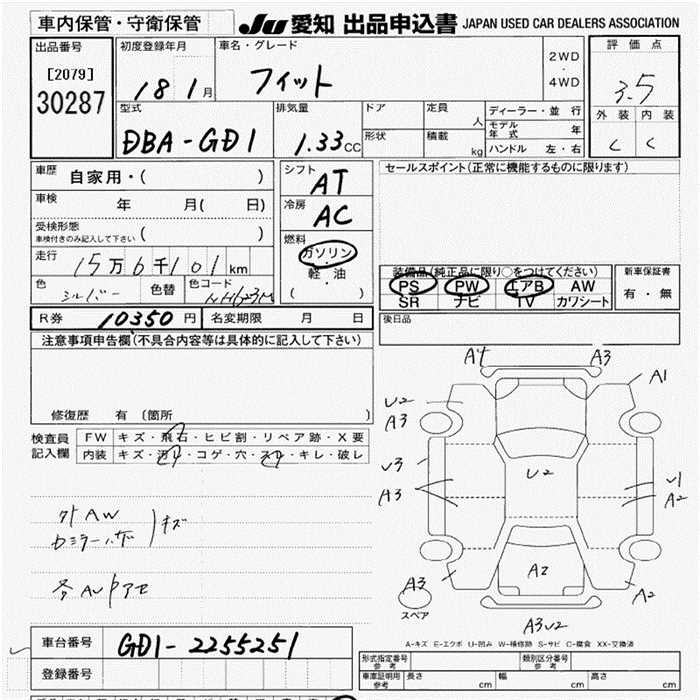 車内保管・守衛保管
JU 愛知 出品申込書 JAPAN USED CAR DEALERS ASSOCIATION
出品番号
[2079]
30287
初度登録年月
18 1月
車名・グレード
フィット
2WD
・
4WD
評価点
3.5
外装 内装
C C
型式
DBA-GD1
排気量
1.33CC
ドア
定員
人
形状
積載
kg
ディーラー・並行
モデル年式 年
ハンドル 左・右
車歴 自家用・( )
車検 年 月( 日)
受検形態
車検付きのみ記入して下さい ( )
走行 15万6千101km
色 シルバー 色替 色コード
シフト
AT
冷房
AC
燃料
ガソリン
・
軽・油
( )
セールスポイント(正常に機能するものに限ります)
装備品(純正品に限り○をつけてください)
PS PW エアB AW
SR ナビ TV カワシート
新車保証書
有・無
R券 10350円 名変期限 月 日
後日品
注意事項申告欄(不具合内容等は具体的に記入して下さい)
修復歴 有 (箇所 )
検査員記入欄
FW キズ・飛石・ヒビ割・リペア跡・X要
内装 キズ・汚れ・コゲ・穴・スレ・キレ・破レ
外AW
キズ
A4 A3
A1
U2
A3
U3
A3
U2
U1
A2
A3
A2
A2
スペア
A3U2
A-キズ E-エクボ U-凹み W-補修跡 S-サビ C-腐食 XX-交換済
車台番号 GD1-2255251
登録番号
形式指定番号
参考
類別区分番号
参考
車庫証明用
参考
長さ cm 幅 cm 高さ cm